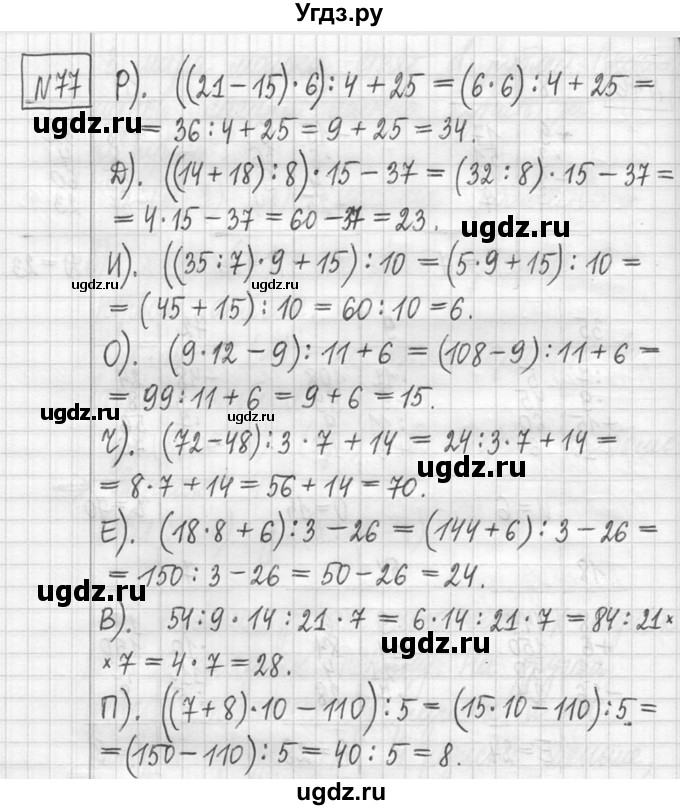 Угдз.ру
№77 Р). ((21-15)·6):4+25=(6·6):4+25=
=36:4+25=9+25=34.
Д). ((14+18):8)·15-37=(32:8)·15-37=
=4·15-37=60-37=23.
И). ((35:7)·9+15):10=(5·9+15):10=
=(45+15):10=60:10=6.
О). (9·12-9):11+6=(108-9):11+6=
=99:11+6=9+6=15.
Ч). (72-48):3·7+14=24:3·7+14=
=8·7+14=56+14=70.
Е). (18·8+6):3-26=(144+6):3-26=
=150:3-26=50-26=24.
В). 54:9·14:21·7=6·14:21·7=84:21×
×7=4·7=28.
П). ((7+8)·10-110):5=(15·10-110):5=
=(150-110):5=40:5=8.
ugdz.ru
ugdz.ru
ugdz.ru
ugdz.ru
ugdz.ru
ugdz.ru
ugdz.ru
ugdz.ru
ugdz.ru
ugdz.ru